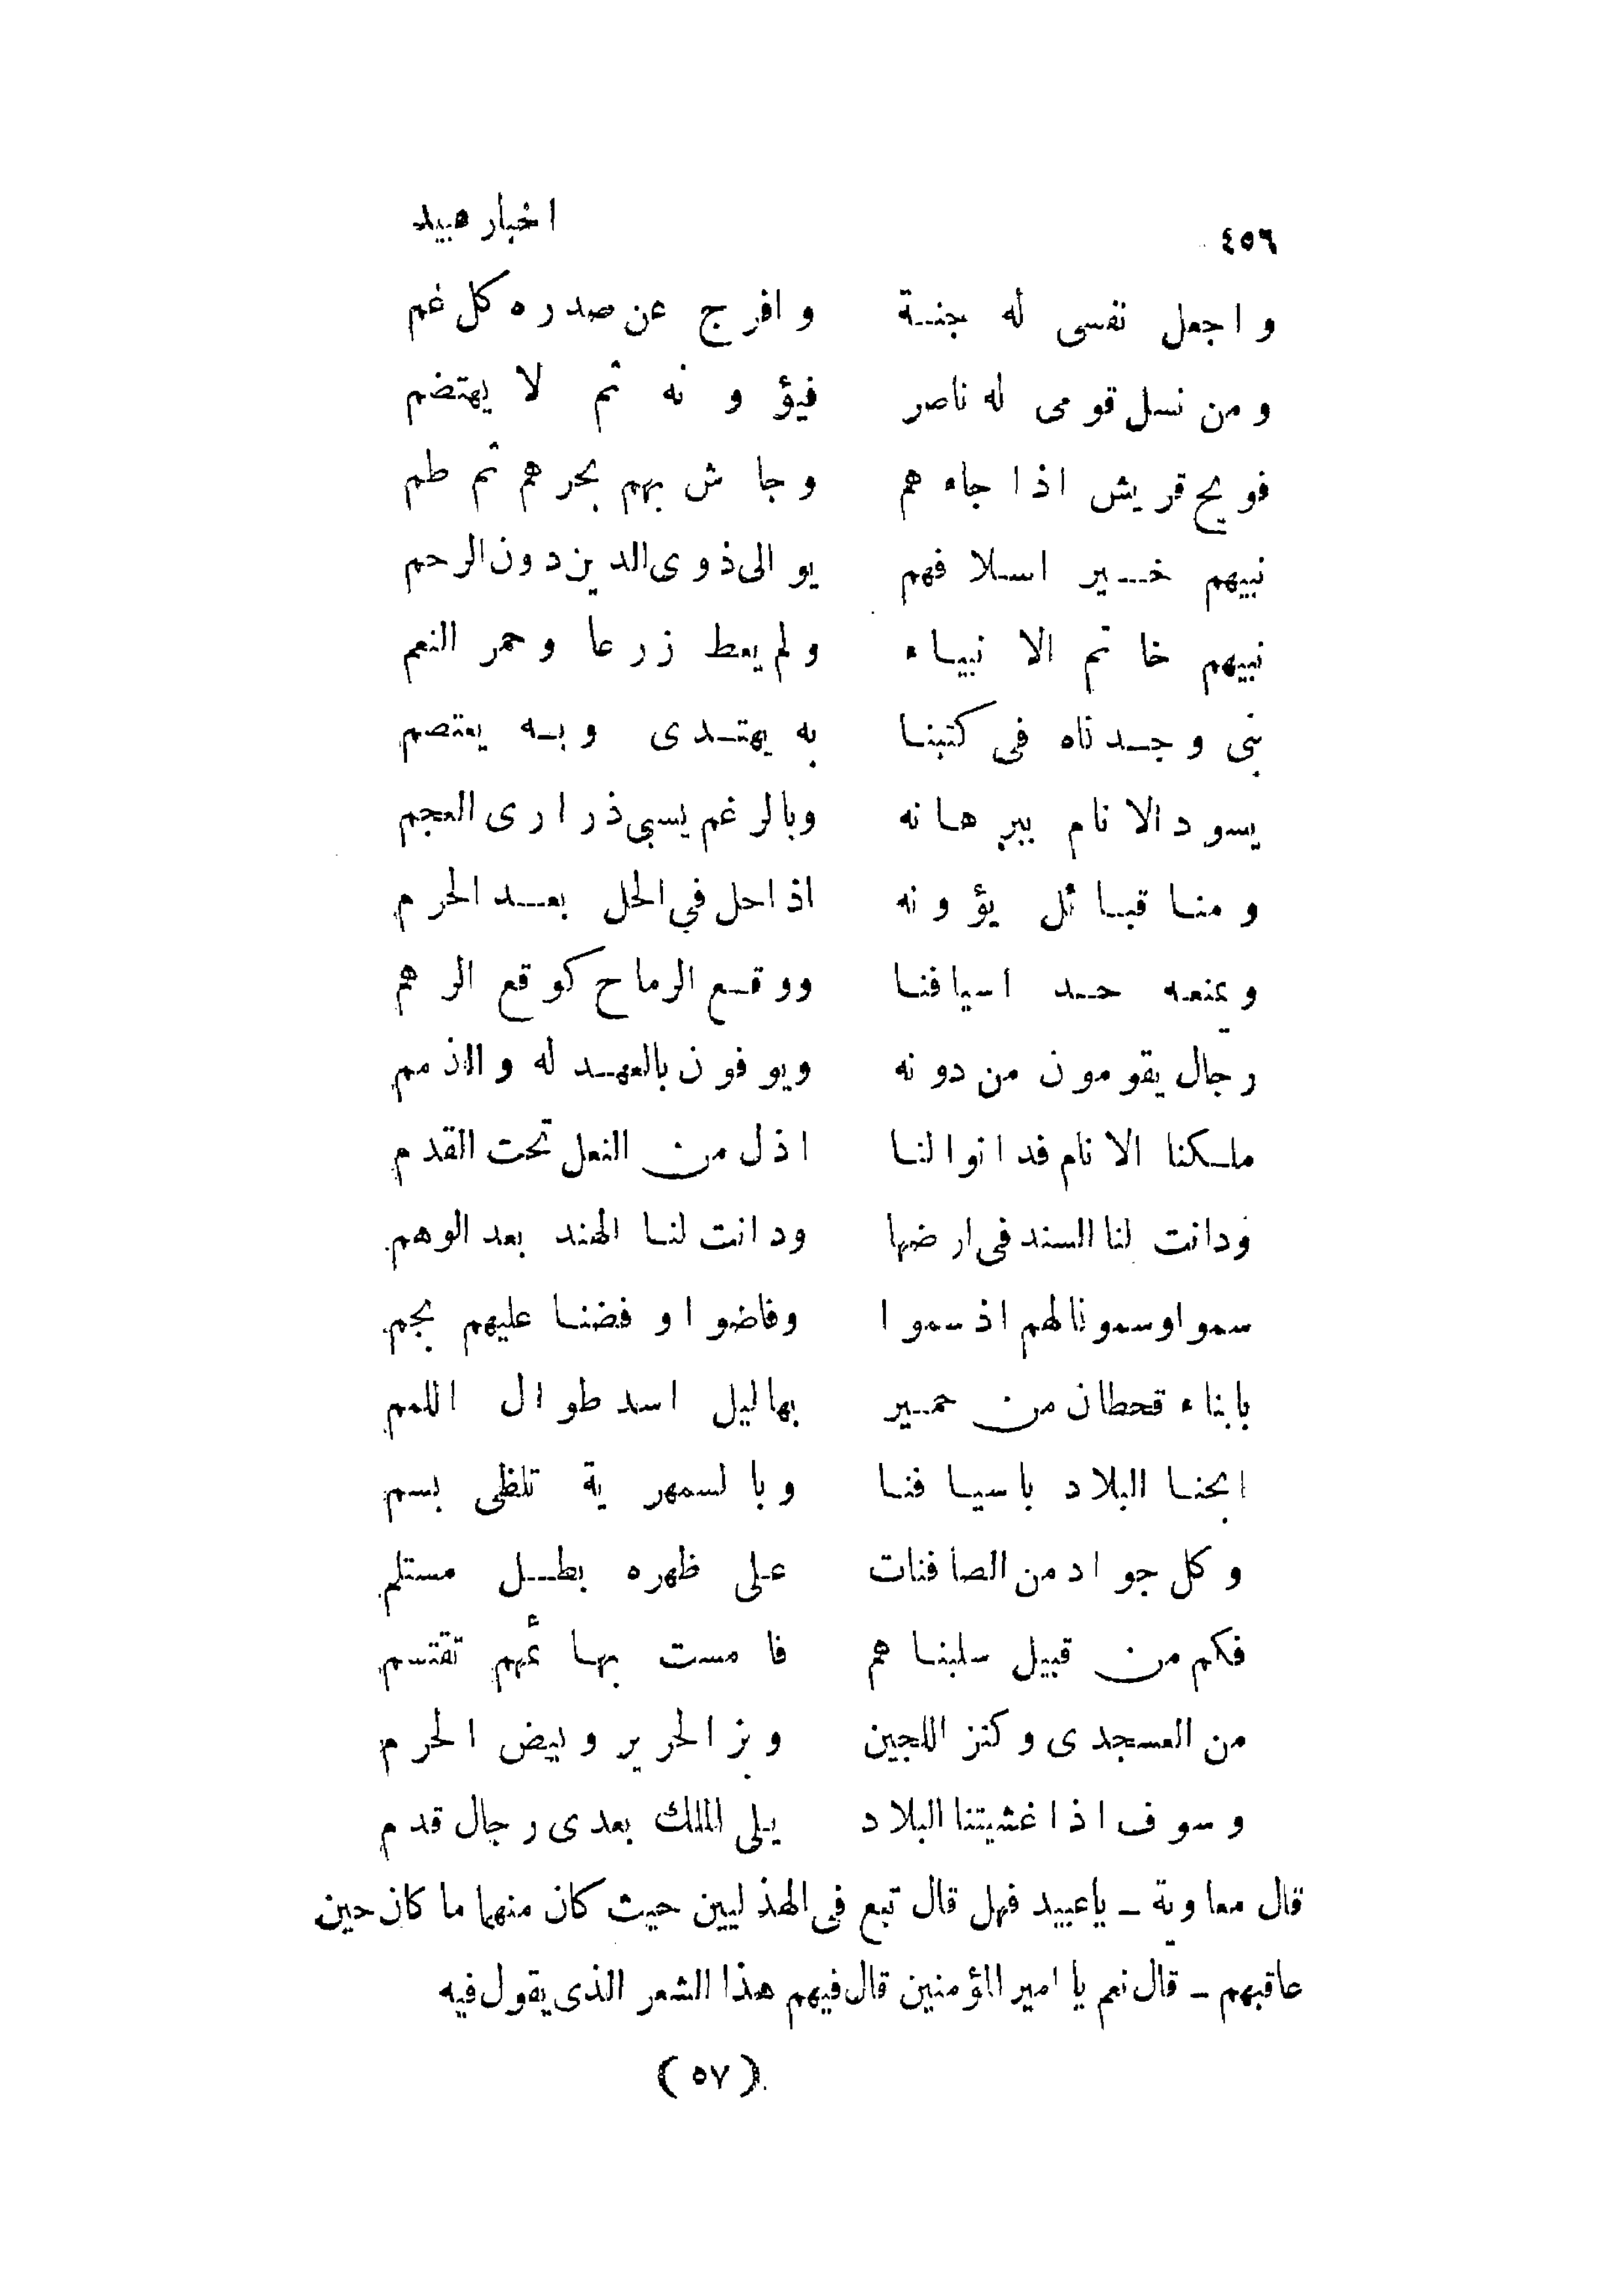 ٤٥٦ اخبار عبيد
واجعل نفسى له جنة وافرج عن صدره كل غم
ومن نسل قومى له ناصر فيؤونه ثم لا يهتضم
فويح قريش اذا جاءهم وجاش بهم بحرهم ثم طم
نبيهم خير اسلافهم يوالى ذوى الدين دون الرحم
نبيهم خاتم الانبياء ولم يعط زرعا وحمر النعم
نبى وجدناه فى كتبنا به يهتدى وبه يعتصم
يسود الانام ببرهانه وبالرغم يسبى ذرارى العجم
ومنا قبائل يؤونه اذا حل في الحل بعد الحرم
ويمنعه حد اسيافنا ووقع الرماح كوقع الرهم
رجال يقومون من دونه ويوفون بالعهد له والذمم
ملكنا الانام فدانوا لنا اذل من النعل تحت القدم
ودانت لنا السند فى ارضها ودانت لنا الهند بعد الوهم
سموا وسمونا لهم اذ سموا وفاضوا وفضنا عليهم بجم
بابناء قحطان من حمير بهاليل اسد طوال اللمم
ابحنا البلاد باسيافنا وبالسمهرية تلظى بسم
وكل جواد من الصافنات على ظهره بطل مستلم
فكم من قبيل سلبناهم فامست بهائمهم تقتسم
من العسجدى وكنز اللجين وبز الحرير وبيض الحرم
وسوف اذا غشيتنا البلاد يلى الملك بعدى رجال قدم
قال معاوية ـ ياعبيد فهل قال تبع فى الهذليين حيث كان منهما ما كان حين
عاقبهم ـ قال نعم يا امير المؤمنين قال فيهم هذا الشعر الذى يقول فيه
(٥٧)